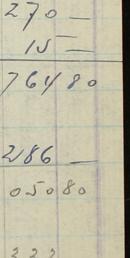 270 —
15 —
764 80
286 —
050 80